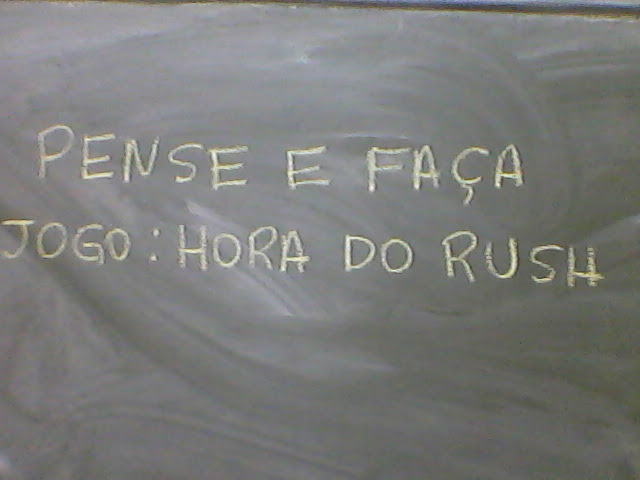 PENSE E FAÇA
JOGO: HORA DO RUSH